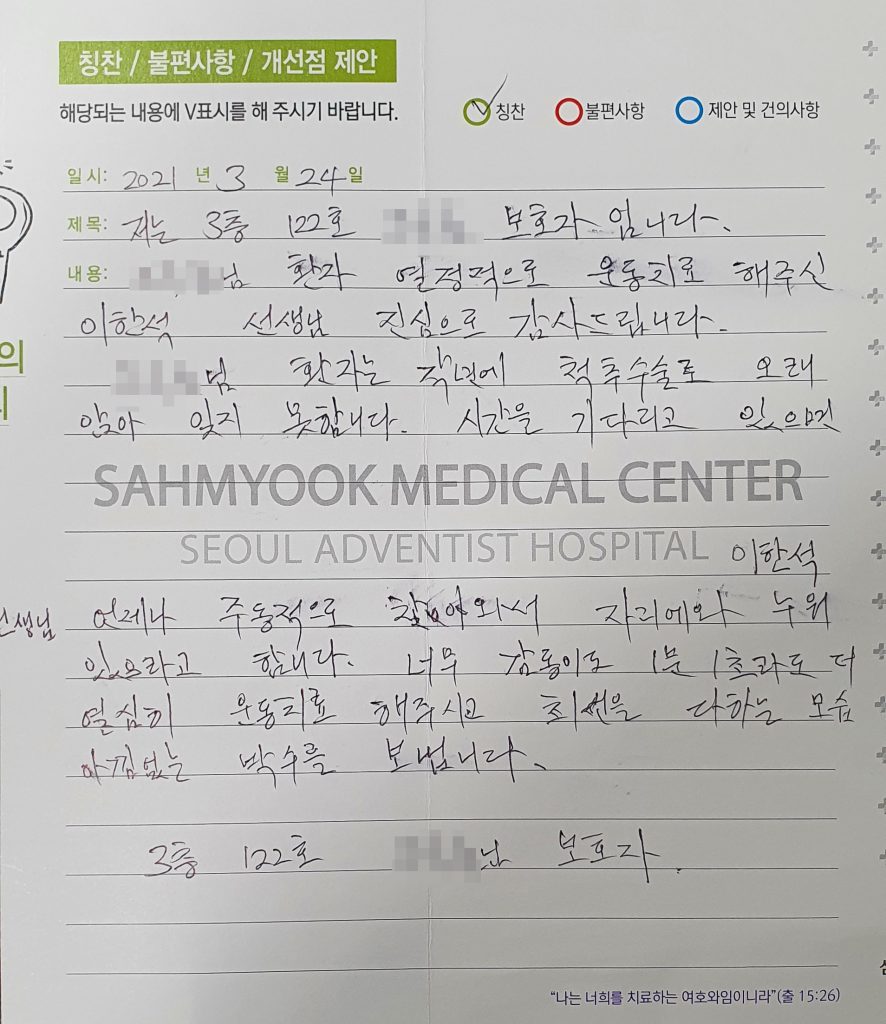 칭찬 / 불편사항 / 개선점 제안
해당되는 내용에 V표시를 해 주시기 바랍니다.
칭찬 불편사항 제안 및 건의사항
일시: 2021 년 3 월 24 일
제목: 저는 3층 122호 보호자 입니다.
내용: 님 환자 열정적으로 운동치료 해주신
이한석 선생님 진심으로 감사드립니다.
의
님 환자는 작년에 척추수술로 오래
앉아 잊지 못합니다. 시간을 기다리고 있으면
SAHMYOOK MEDICAL CENTER
SEOUL ADVENTIST HOSPITAL
이한석
선생님 언제나 주동적으로 찾아와서 자리에와 누워
있으라고 합니다. 너무 감동이도 1분 1초라도 더
열심히 운동치료 해주시고 최선을 다하는 모습
아낌없는 박수를 보냅니다.
3층 122호 님 보호자.
"나는 너희를 치료하는 여호와임이니라"(출 15:26)